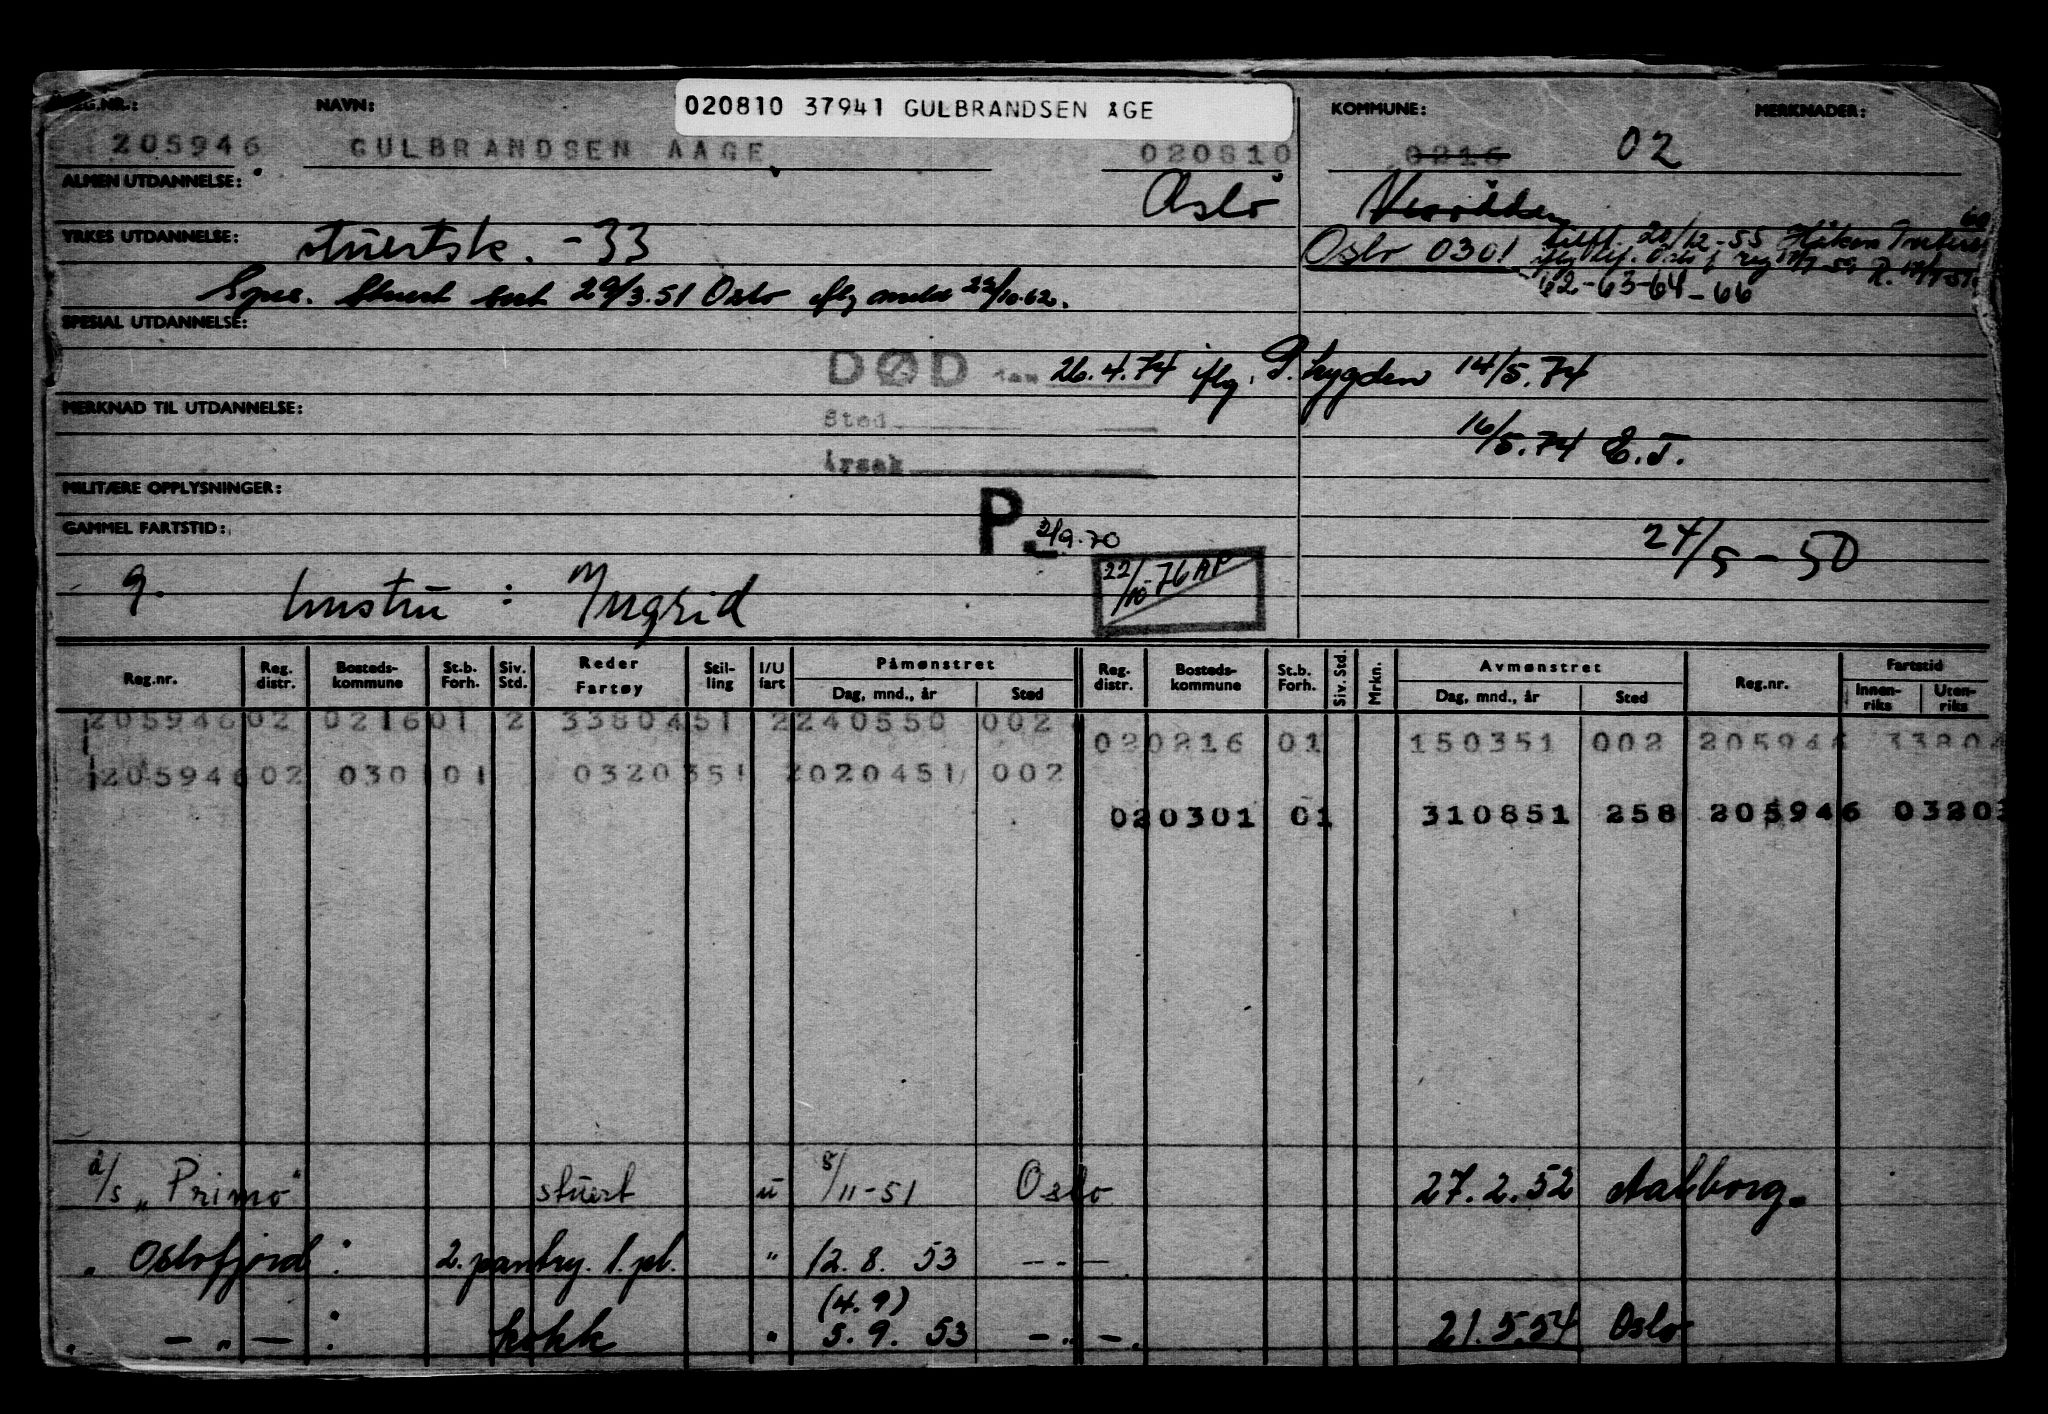 REG.NR.: NAVN: 020810 37941 GULBRANDSEN ÅGE KOMMUNE: MERKNADER:
205946 GULBRANDSEN AAGE 020810 0216 02
ALMEN UTDANNELSE: Oslo
YRKES UTDANNELSE: stuertsk. -33 Oslo 0301 20/12-55 Håkon
Spes. stuert sert 29/3.51 Oslo iflg meld 22/10.62. 62-63-64-66
SPESIAL UTDANNELSE:
DØD den 26.4.74 iflg. P. trygden 14/5.74
MERKNAD TIL UTDANNELSE: Sted
16/5.74 E.T.
Årsak
MILITÆRE OPPLYSNINGER:
GAMMEL FARTSTID: P. 2/9.70 24/5-50
g. hustru : Ingrid 22/10-76 AP
Reg.nr. Reg. distr. Bosteds-kommune St.b. Forh. Siv. Std. Reder Fartøy Stil-ling I/U fart Påmønstret Dag, mnd., år Sted Reg. distr. Bosteds-kommune St.b. Forh. Siv. Std. Mrkn. Avmønstret Dag, mnd., år Sted Reg.nr. Fartstid Innen-riks Uten-riks
205946 02 0216 01 2 33804 51 2 240550 002
02 0216 01 150351 002 205946 33804
205946 02 0301 01 0320351 2 020451 002
02 0301 01 310851 258 205946 0320
d/s "Primo" stuert u 8/11-51 Oslo 27.2.52 Aalborg.
" Oslofjord : 2. pantry. 1. pl. " 12.8.53 -"-
(4.9)
" -"- : kokk " 5.9.53 -"-. 21.5.54 Oslo